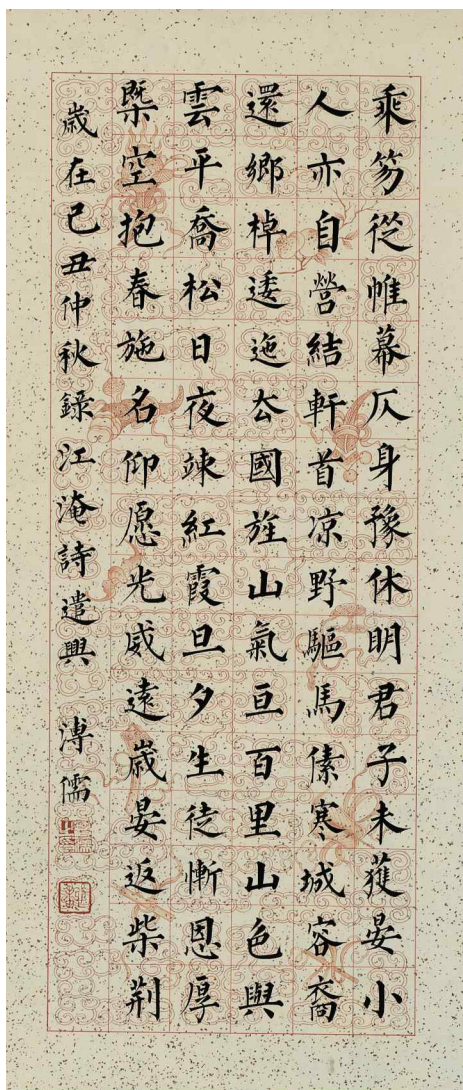 乘笏從帷幕仄身豫休明君子未获晏小
人亦自營結軒首凉野驅馬傃寒城容裔
還鄉棹逶迤去國旌山氣亘百里山色與
雲平喬松日夜竦紅霞旦夕生徒慚恩厚
槩空抱春施名仰愿光威遠歲晏返柴荆
歲在己丑仲秋錄江淹詩遣興 溥儒